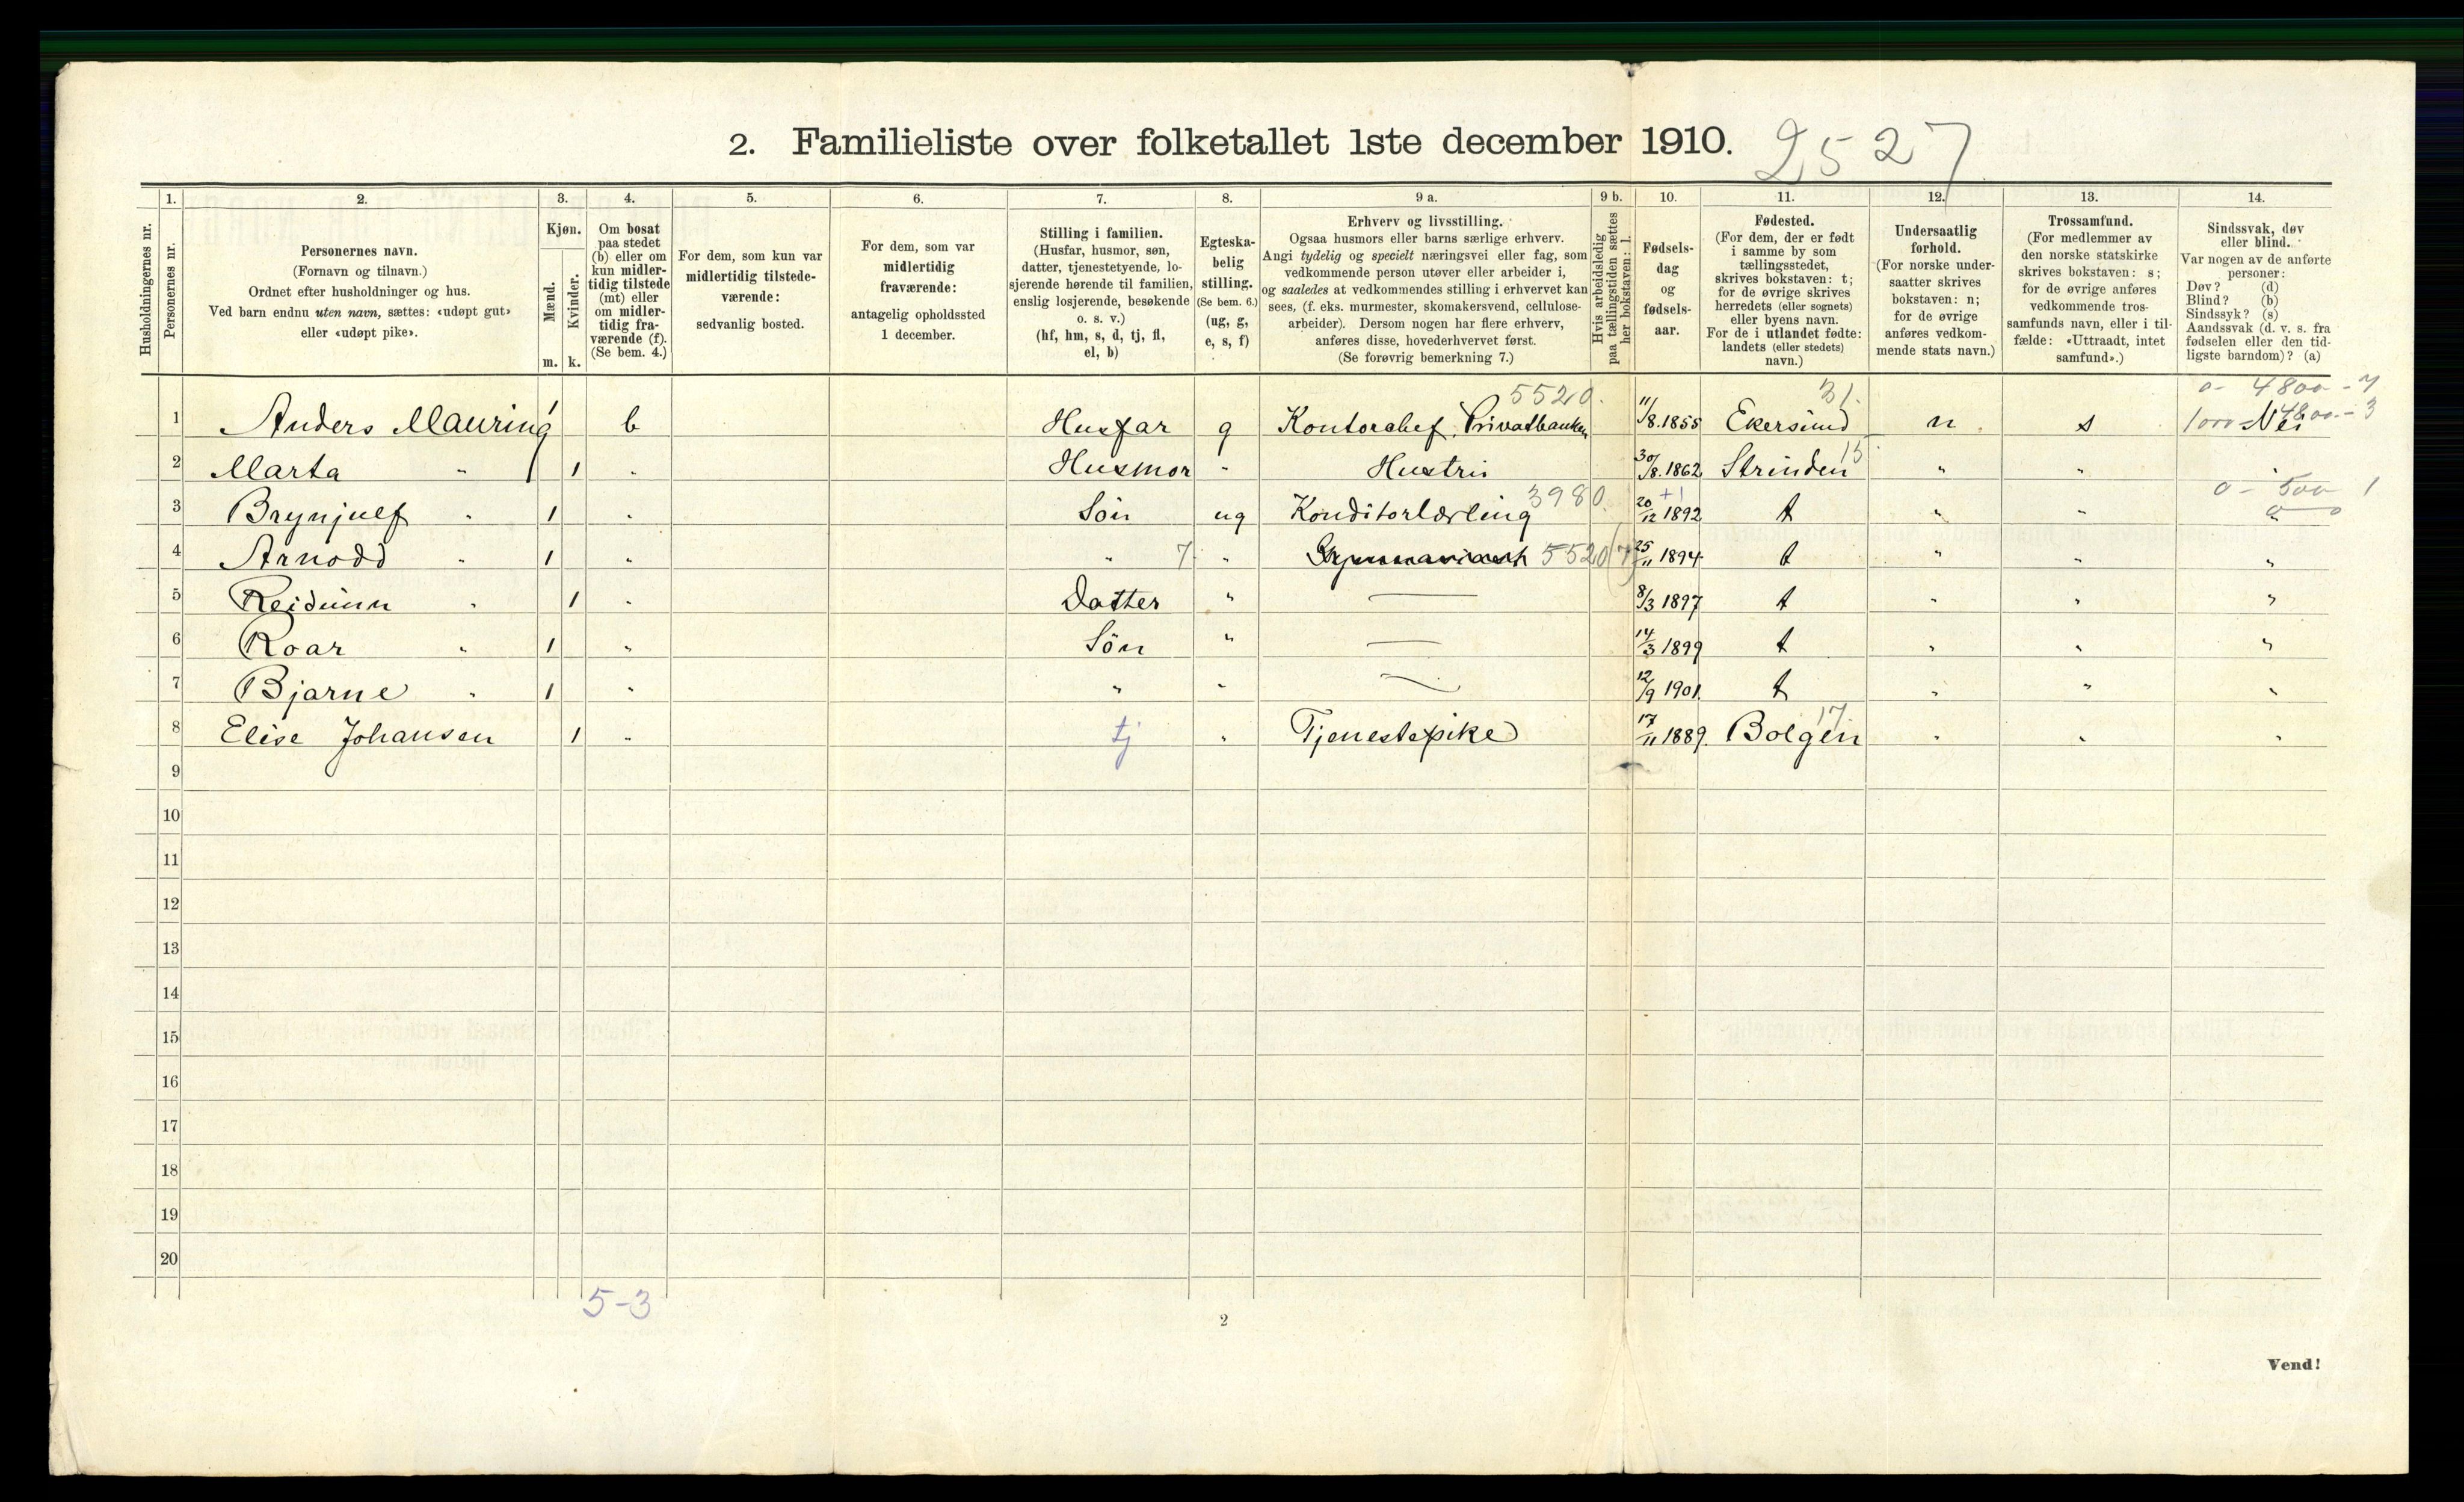 2. Familieliste over folketallet 1ste december 1910. 2527
Husholdningernes nr.
1.
Personernes nr.
2.
Personernes navn.
(Fornavn og tilnavn.)
Ordnet efter husholdninger og hus.
Ved barn endnu uten navn, sættes: «udøpt gut»
eller «udøpt pike».
3.
Kjøn.
Mænd.
Kvinder.
m. k.
4.
Om bosat
paa stedet
(b) eller om
kun midler-
tidig tilstede
(mt) eller
om midler-
tidig fra-
værende (f).
(Se bem. 4.)
5.
For dem, som kun var
midlertidig tilstede-
værende:
sedvanlig bosted.
6.
For dem, som var
midlertidig
fraværende:
antagelig opholdssted
1 december.
7.
Stilling i familien.
(Husfar, husmor, søn,
datter, tjenestetyende, lo-
sjerende hørende til familien,
enslig losjerende, besøkende
o. s. v.)
(hf, hm, s, d, tj, fl,
el, b)
8.
Egteska-
belig
stilling.
(Se bem. 6.)
(ug, g,
e, s, f)
9 a.
Erhverv og livsstilling.
Ogsaa husmors eller barns særlige erhverv.
Angi tydelig og specielt næringsvei eller fag, som
vedkommende person utøver eller arbeider i,
og saaledes at vedkommendes stilling i erhvervet kan
sees, (f. eks. murmester, skomakersvend, cellulose-
arbeider). Dersom nogen har flere erhverv,
anføres disse, hovederhvervet først.
(Se forøvrig bemerkning 7.)
9 b.
Hvis arbeidsledig
paa tællingstiden sættes
her bokstaven: l.
10.
Fødsels-
dag
og
fødsels-
aar.
11.
Fødested.
(For dem, der er født
i samme by som
tællingsstedet,
skrives bokstaven: t;
for de øvrige skrives
herredets (eller sognets)
eller byens navn.
For de i utlandet fødte:
landets (eller stedets)
navn.)
12.
Undersaatlig
forhold.
(For norske under-
saatter skrives
bokstaven: n;
for de øvrige
anføres vedkom-
mende stats navn.)
13.
Trossamfund.
(For medlemmer av
den norske statskirke
skrives bokstaven: s;
for de øvrige anføres
vedkommende tros-
samfunds navn, eller i til-
fælde: «Uttraadt, intet
samfund».)
14.
Sindssvak, døv
eller blind.
Var nogen av de anførte
personer:
Døv? (d)
Blind? (b)
Sindssyk? (s)
Aandssvak (d. v. s. fra
fødselen eller den tid-
ligste barndom)? (a)
5520. 31. 0 - 4800 - 7
1 Anders Mauring 1 b Husfar g Kontorchef, Privatbanken 11/8.1855 Ekersund n s 1000 Nei 4800 - 3
2 Marta " 1 " Husmor " Hustru 30/8.1862 Strinden 15 " " "
0 - 500 1
3 Brynjulf " 1 " Søn ug Konditorlærling 3980. 20/12 1892 t " " "
4 Arnodd " 1 " " 7 " Gymnasiast 5520 (7) 25/11 1894 t " " "
5 Reidunn " 1 " Datter " — 8/3 1897 t " " "
6 Roar " 1 " Søn " — 14/3 1899 t " " "
7 Bjarne " 1 " " " — 12/9 1901. t " " "
8 Elise Johansen 1 " tj " Tjenestepike 17/11 1889. Bolgen 17 " " "
9
10
11
12
13
14
15
16
17
18
19
20
5-3
2
Vend!